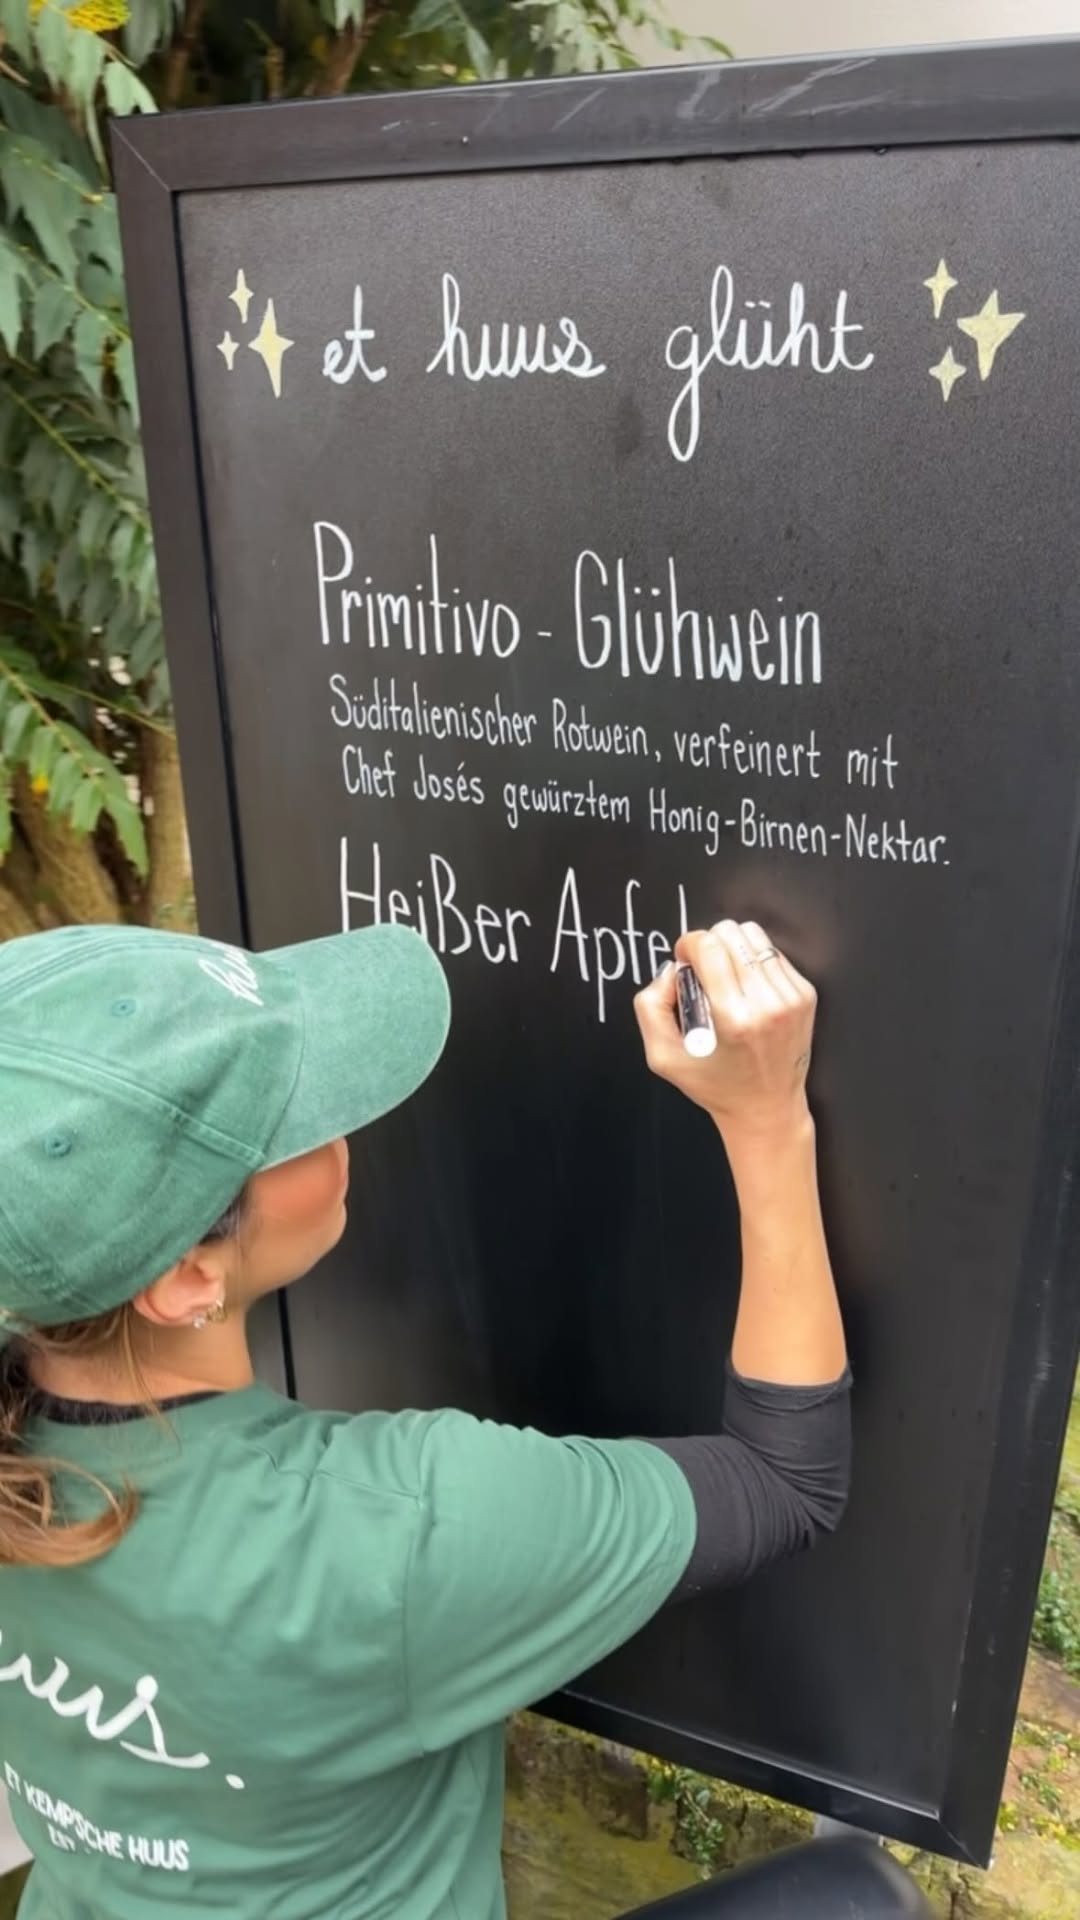 et huus glüht
Primitivo - Glühwein
Süditalienischer Rotwein, verfeinert mit
Chef Josés gewürztem Honig-Birnen-Nektar.
Heißer Apfel
ET KEMP'SCHE HUUS